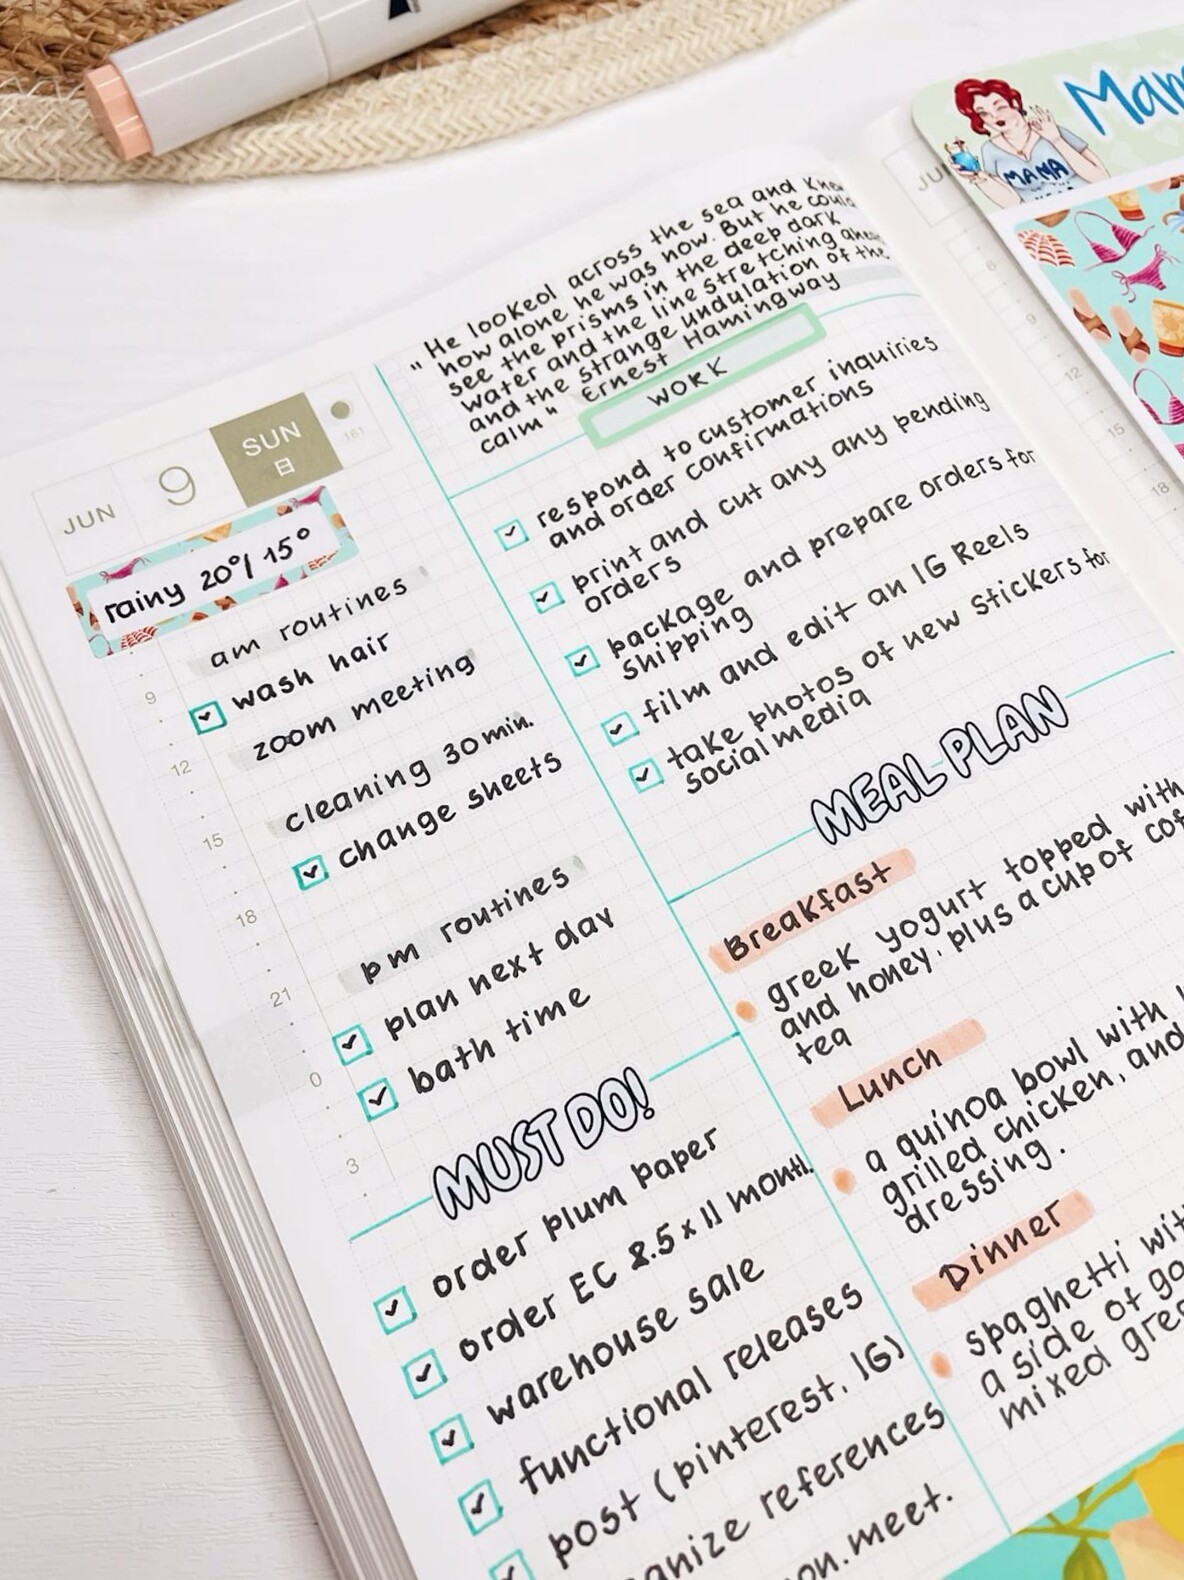 "He looked across the sea and knew
how alone he was now. But he could
see the prisms in the deep dark
water and the line stretching ahead
and the strange undulation of the
calm" Ernest Hamingway
JUN 9 SUN
日
161
rainy 20°/15°
am routines
9
wash hair
zoom meeting
12
cleaning 30 min.
15
change sheets
18
pm routines
21
plan next day
0
bath time
3
MUST DO!
order plum paper
order EC 8.5 x 11 month.
warehouse sale
functional releases
post (pinterest. IG)
references
meet.
WORK
respond to customer inquiries
and order confirmations
print and cut any any pending
orders
package and prepare orders for
shipping
film and edit an IG Reels
take photos of new stickers for
social media
MEAL PLAN
Breakfast
greek yogurt topped with
and honey, plus a cup of
tea
Lunch
a quinoa bowl with
grilled chicken, and
dressing.
Dinner
spaghetti
a side of
mixed
MAMA
6
9
12
15
18